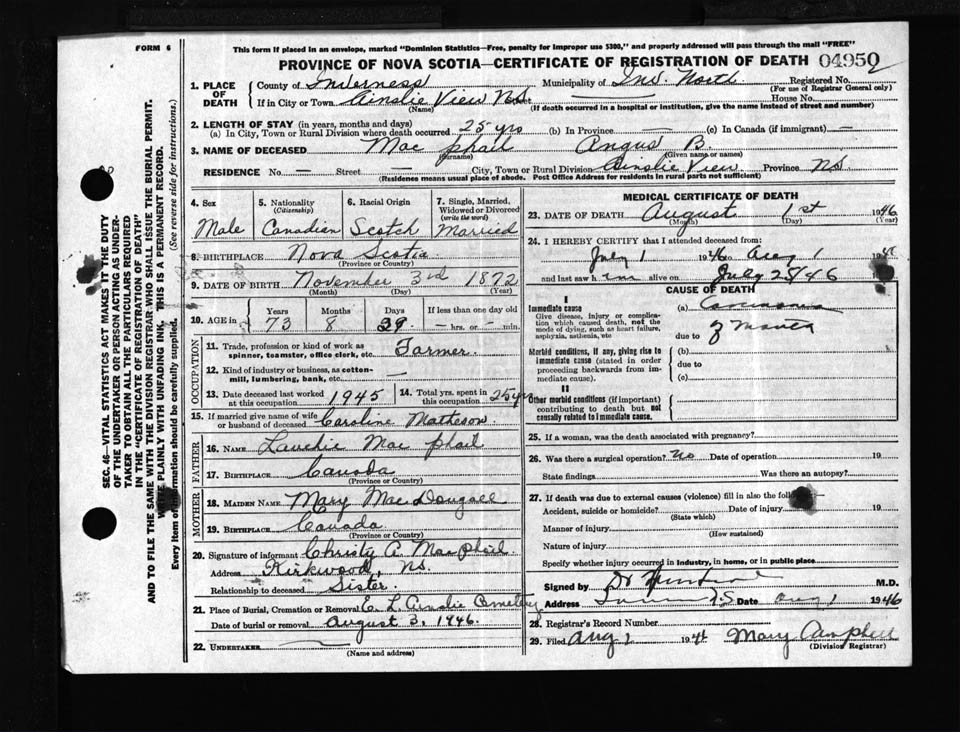 FORM 6
This form if placed in an envelope, marked "Dominion Statistics—Free, penalty for improper use $300," and properly addressed will pass through the mail "FREE"
PROVINCE OF NOVA SCOTIA—CERTIFICATE OF REGISTRATION OF DEATH 04950
1. PLACE OF DEATH
County of Inverness Municipality of Inv. North Registered No.
(For use of Registrar General only)
If in City or Town Ainslie View N.S. House No.
(Name) (If death occurred in a hospital or institution, give the name instead of street and number)
2. LENGTH OF STAY (in years, months and days)
(a) In City, Town or Rural Division where death occurred 25 yrs (b) In Province — (c) In Canada (if immigrant) —
3. NAME OF DECEASED Mac phail Angus B.
(Surname) (Given name or names)
RESIDENCE No. — Street City, Town or Rural Division Ainslie View Province N.S.
(Residence means usual place of abode. Post Office Address for residents in rural parts not sufficient)
4. Sex Male
5. Nationality (Citizenship) Canadian
6. Racial Origin Scotch
7. Single, Married, Widowed or Divorced (write the word) Married
8. BIRTHPLACE Nova Scotia
(Province or Country)
9. DATE OF BIRTH November 3rd 1872
(Month) (Day) (Year)
10. AGE in Years 73 Months 8 Days If less than one day old — hrs. or — min.
OCCUPATION
11. Trade, profession or kind of work as spinner, teamster, office clerk, etc. Farmer.
12. Kind of industry or business, as cotton-mill, lumbering, bank, etc. —
13. Date deceased last worked at this occupation 1945
14. Total yrs. spent in this occupation 25 yrs
15. If married give name of wife or husband of deceased Caroline Matheson
FATHER
16. Name Lauchie Mac phail
17. BIRTHPLACE Canada
(Province or Country)
MOTHER
18. MAIDEN NAME Mary MacDougall
19. BIRTHPLACE Canada
(Province or Country)
20. Signature of informant Christy A. Macphail
Address Kirkwood, N.S.
Relationship to deceased Sister
21. Place of Burial, Cremation or Removal E. L. Ainslie Cemetery
Date of burial or removal August 3, 1946.
22. UNDERTAKER
(Name and address)
MEDICAL CERTIFICATE OF DEATH
23. DATE OF DEATH August 1st 1946
(Month) (Day) (Year)
24. I HEREBY CERTIFY that I attended deceased from:
July 1 1946 to Aug 1 19
and last saw h im alive on July 25/46
CAUSE OF DEATH
I
Immediate cause
Give disease, injury or complication which caused death, not the mode of dying, such as heart failure, asphyxia, asthenia, etc
(a) Carcinoma
due to of
Morbid conditions, if any, giving rise to immediate cause (stated in order proceeding backwards from immediate cause).
(b)
due to
(c)
II
Other morbid conditions (if important) contributing to death but not causally related to immediate cause.
25. If a woman, was the death associated with pregnancy?
26. Was there a surgical operation? No Date of operation 19
State findings Was there an autopsy?
27. If death was due to external causes (violence) fill in also the
Accident, suicide or homicide? Date of injury 19
(State which)
Manner of injury
(How sustained)
Nature of injury
Specify whether injury occurred in industry, in home, or in public place
Signed by M.D.
Address Date Aug 1 1946
28. Registrar's Record Number
29. Filed Aug 1 19 Mary Campbell
(Division Registrar)
SEC. 46—VITAL STATISTICS ACT MAKES IT THE DUTY
OF THE UNDERTAKER OR PERSON ACTING AS UNDER-
TAKER TO OBTAIN ALL THE PARTICULARS REQUIRED
IN THE "CERTIFICATE OF REGISTRATION OF DEATH"
AND TO FILE THE SAME WITH THE DIVISION REGISTRAR WHO SHALL ISSUE THE BURIAL PERMIT.
WRITE PLAINLY WITH UNFADING INK. THIS IS A PERMANENT RECORD.
Every item of information should be carefully supplied. (See reverse side for instructions.)